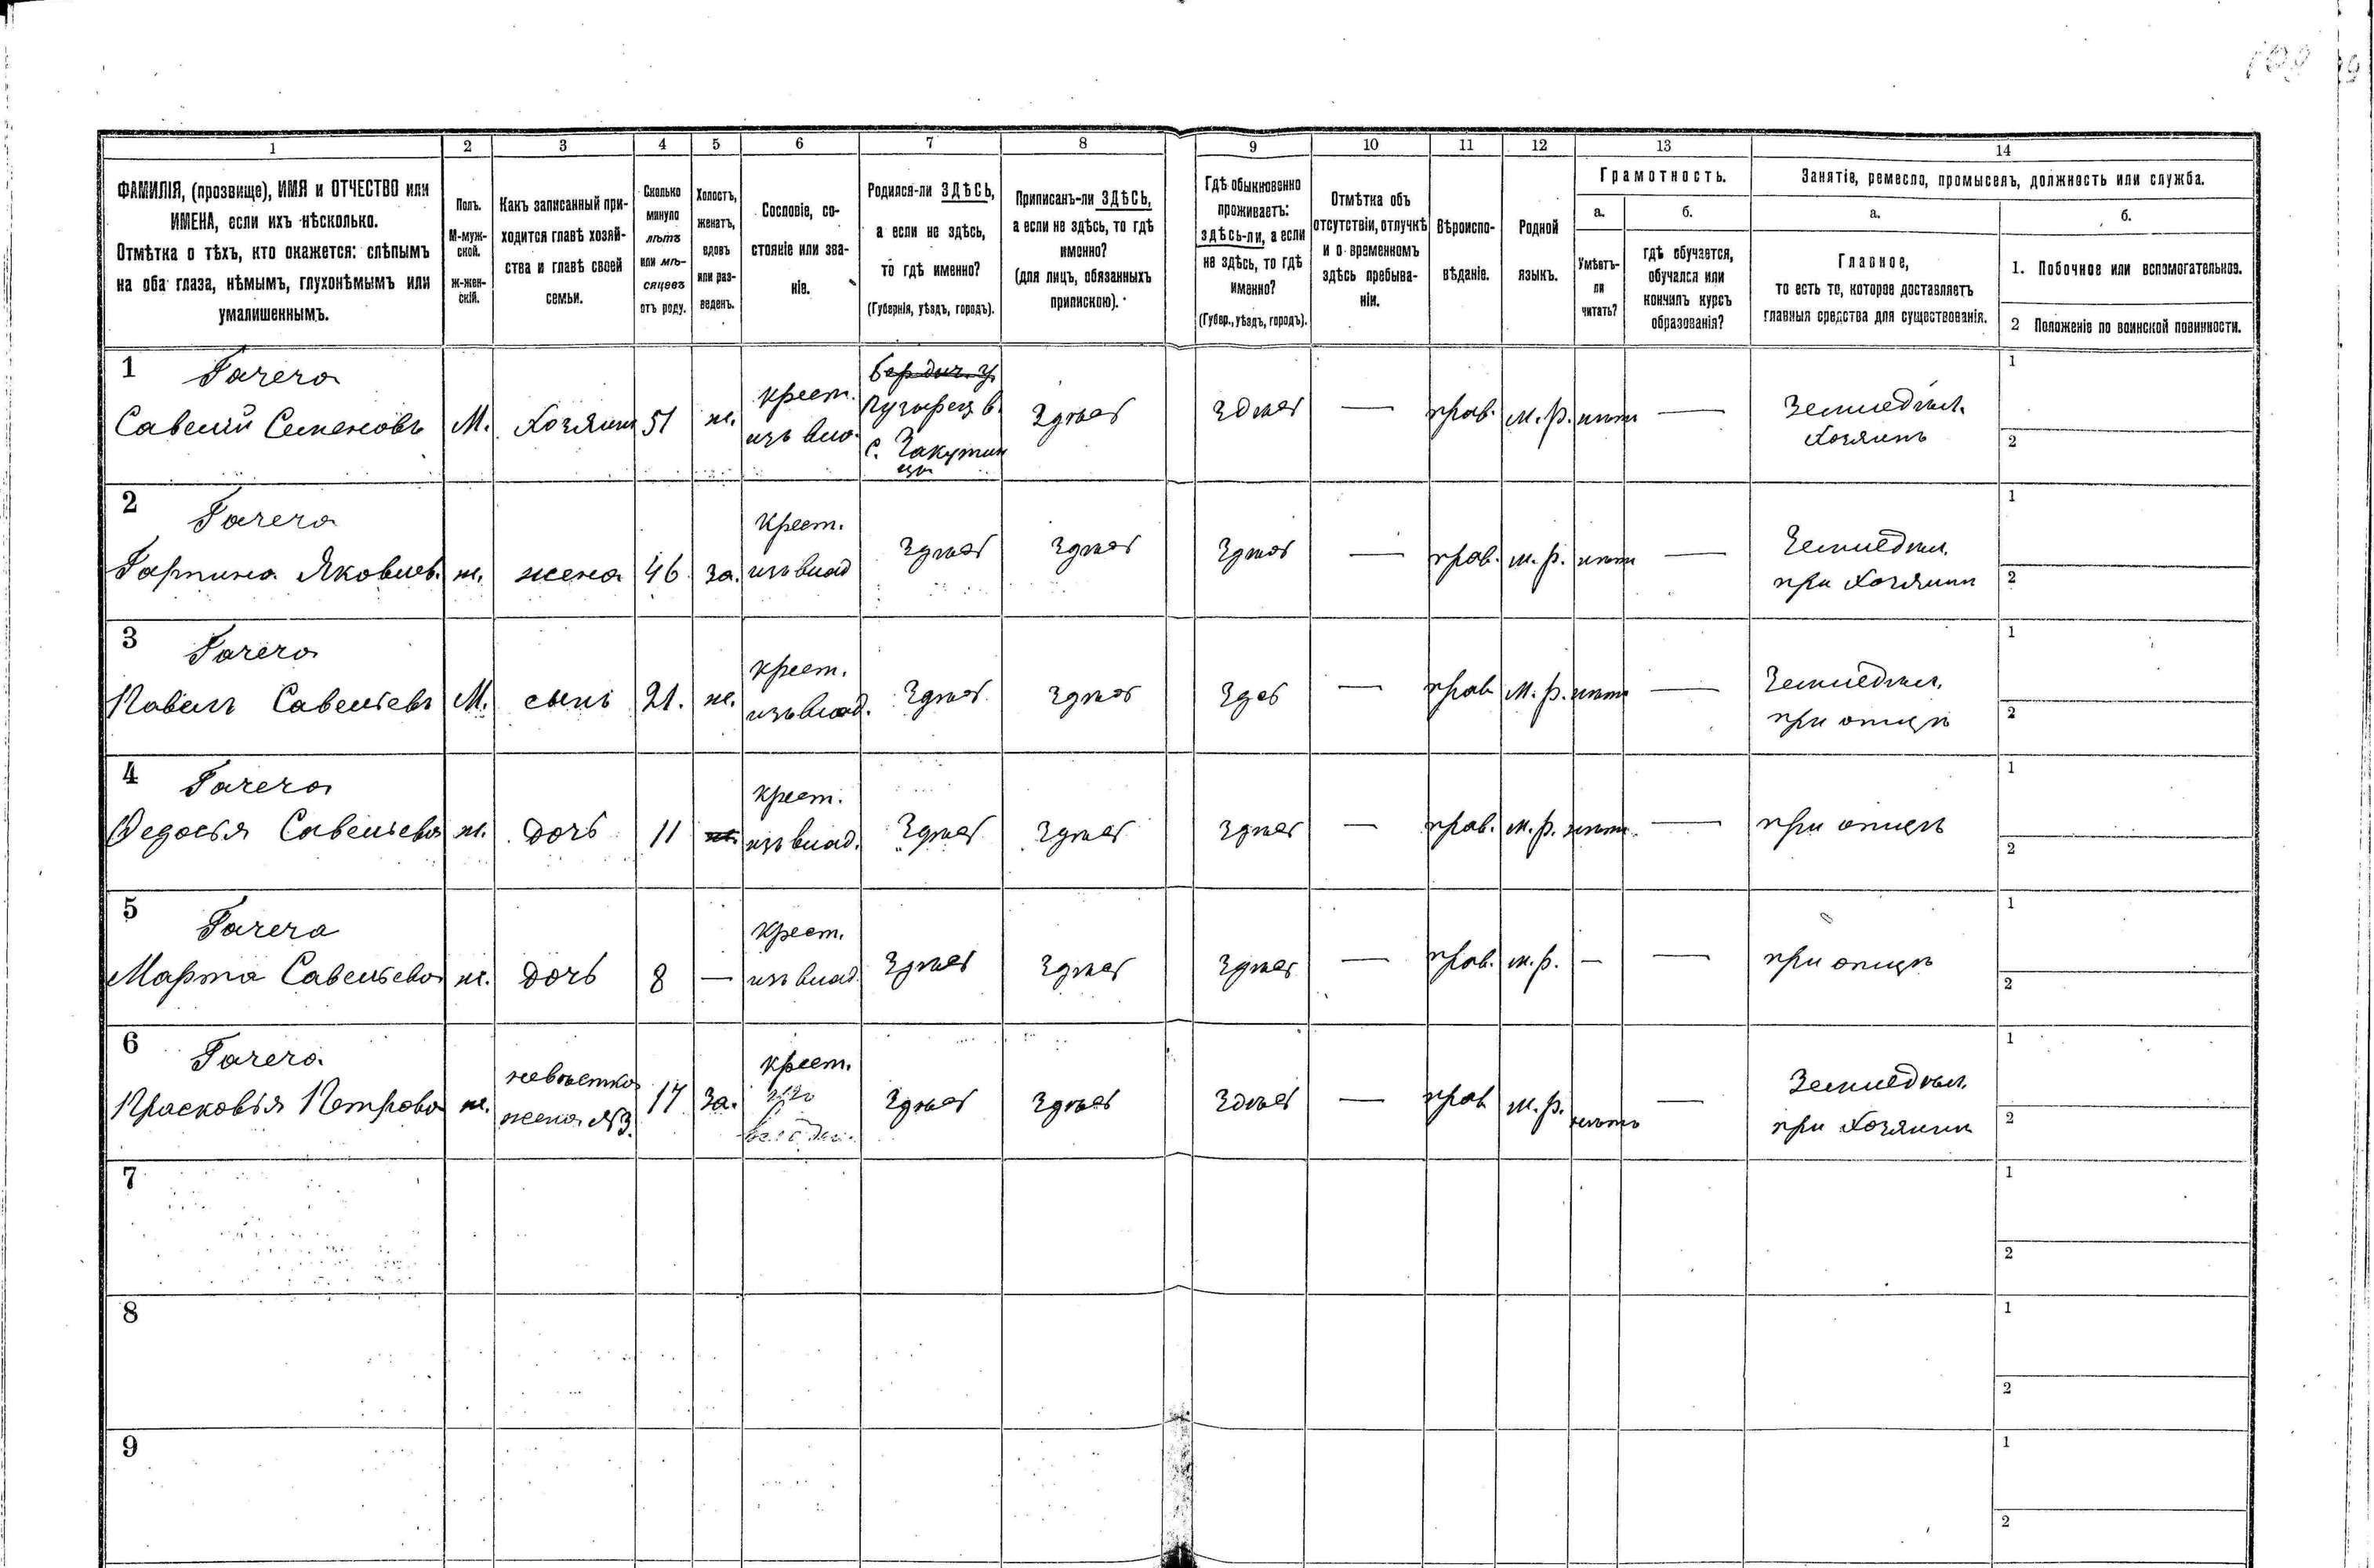 109
1 2 3 4 5 6 7 8 9 10 11 12 13 14
ФАМИЛІЯ, (прозвище), ИМЯ и ОТЧЕСТВО или
ИМЕНА, если ихъ нѣсколько.
Отмѣтка о тѣхъ, кто окажется: слѣпымъ
на оба глаза, нѣмымъ, глухонѣмымъ или
умалишеннымъ.
Полъ.
М-муж-
ской.
ж-жен-
скій.
Какъ записанный при-
ходится главѣ хозяй-
ства и главѣ своей
семьи.
Сколько
минуло
лѣтъ
или мѣ-
сяцевъ
отъ роду.
Холостъ,
женатъ,
вдовъ
или раз-
веденъ.
Сословіе, со-
стояніе или зва-
ніе.
Родился-ли ЗДѢСЬ,
а если не здѣсь,
то гдѣ именно?
(Губернія, уѣздъ, городъ).
Приписанъ-ли ЗДѢСЬ,
а если не здѣсь, то гдѣ
именно?
(для лицъ, обязанныхъ
припискою).
Гдѣ обыкновенно
проживаетъ:
здѣсь-ли, а если
не здѣсь, то гдѣ
именно?
(Губер., уѣздъ, городъ).
Отмѣтка объ
отсутствіи, отлучкѣ
и о временномъ
здѣсь пребыва-
ніи.
Вѣроиспо-
вѣданіе.
Родной
языкъ.
Грамотность.
а.
Умѣетъ-
ли
читать?
б.
гдѣ обучается,
обучался или
кончилъ курсъ
образованія?
Занятіе, ремесло, промыселъ, должность или служба.
а.
Главное,
то есть то, которое доставляетъ
главныя средства для существованія.
б.
1. Побочное или вспомогательное.
2 Положеніе по воинской повинности.
1 Гачега
Савелій Семеновъ М. Хозяинъ 51 ж.
крест.
изъ вла.
Бердич. у.
Пузырец в.
с. Закутин
цы
Здѣсь Здѣсь — прав. м. р. нѣтъ —
Земледѣл.
Хозяинъ
1
2
2 Гачега
Гарпина Яковлев. ж. жена 46 за.
крест.
изъ влад
Здѣсь Здѣсь Здѣсь — прав. м. р. нѣтъ —
Земледѣл.
при Хозяинѣ
1
2
3 Гачега
Павелъ Савельевъ М. сынъ 21. ж.
крест.
изъ влад.
Здѣсь Здѣсь Здѣсь — прав. м. р. нѣтъ —
Земледѣл.
при отцѣ
1
2
4 Гачега
Федосья Савельева ж. дочь 11 ж.
крест.
изъ влад.
Здѣсь Здѣсь Здѣсь — прав. м. р. нѣтъ —
при отцѣ
1
2
5 Гачега
Марта Савельева ж. дочь 8 —
крест.
изъ влад.
Здѣсь Здѣсь Здѣсь — прав. м. р. — —
при отцѣ
1
2
6 Гачега
Прасковія Петрова ж.
невѣстка
жена №3.
17 за.
крест.
изъ
Здѣсь Здѣсь Здѣсь — прав м. р. нѣтъ —
Земледѣл.
при Хозяинѣ
1
2
7
1
2
8
1
2
9
1
2